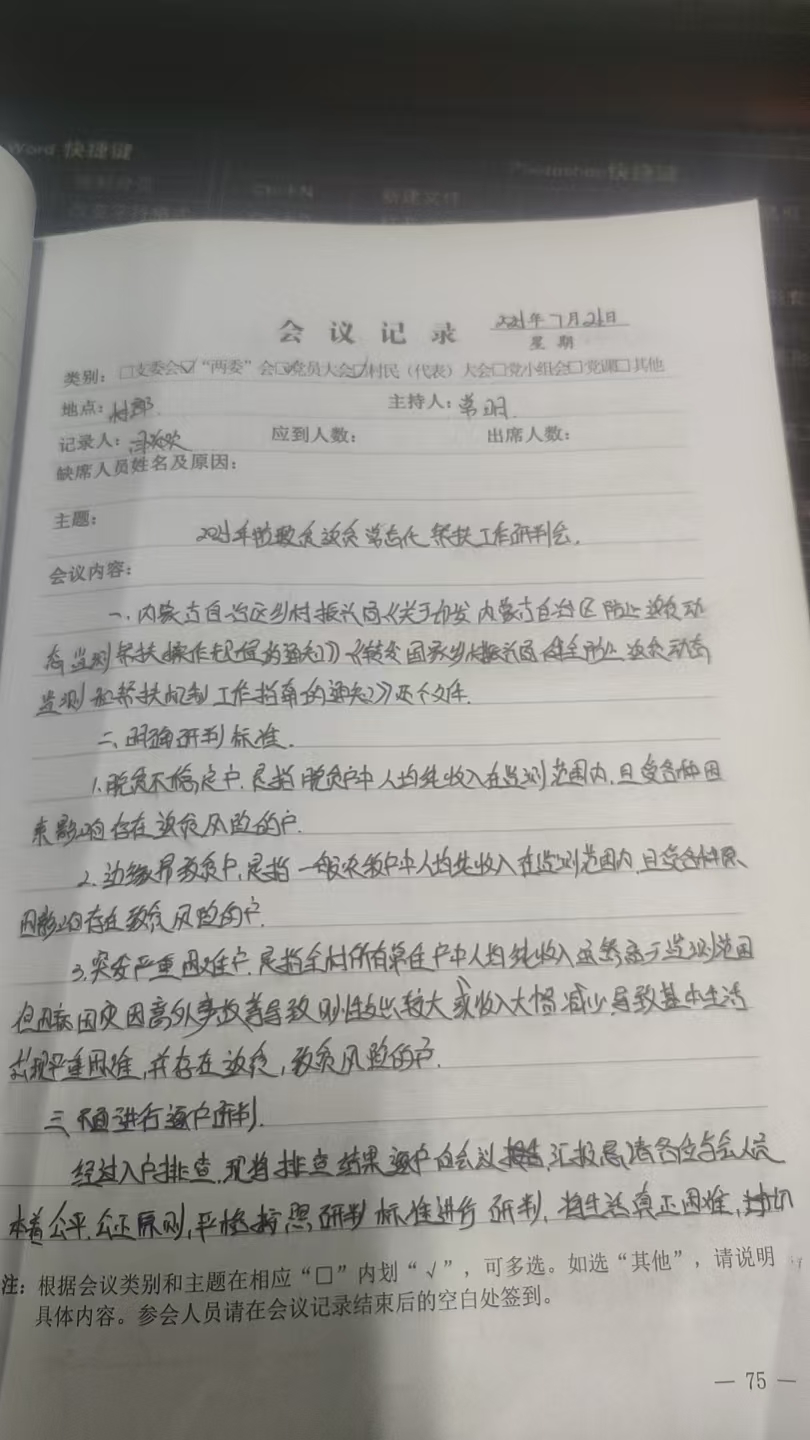 Word 快捷键
快捷键
新建文件
会议记录 2021年7月21日
星期
类别：□支委会☑“两委”会☑党员大会☑村民（代表）大会□党小组会□党课□其他
地点：村部 主持人：常明
记录人： 应到人数： 出席人数：
缺席人员姓名及原因：
主题：
2021年防致贫返贫常态化帮扶工作研判会.
会议内容：
一、内蒙古自治区乡村振兴局《关于印发内蒙古自治区防止返贫动
态监测帮扶操作规程的通知》《转发国家乡村振兴局健全防止返贫动态
监测和帮扶机制工作指南的通知》两个文件.
二、明确研判标准.
1.脱贫不稳定户.是指脱贫户中人均纯收入在监测范围内,且受各种因
素影响存在返贫风险的户.
2.边缘易致贫户,是指一般农牧户中人均纯收入在监测范围内,且受各种原
因影响存在致贫风险的户.
3.突发严重困难户.是指全村所有常住户中人均纯收入虽然高于监测范围
但因病因灾因意外事故等导致刚性支出较大或收入大幅减少导致基本生活
出现严重困难,并存在返贫,致贫风险的户.
三、进行逐户研判.
经过入户排查.现将排查结果逐户向会议汇报,恳请各位与会人员
本着公平.公正原则,严格按照研判标准进行研判,将生活真正困难,
注：根据会议类别和主题在相应“□”内划“√”，可多选。如选“其他”，请说明
具体内容。参会人员请在会议记录结束后的空白处签到。
— 75 —